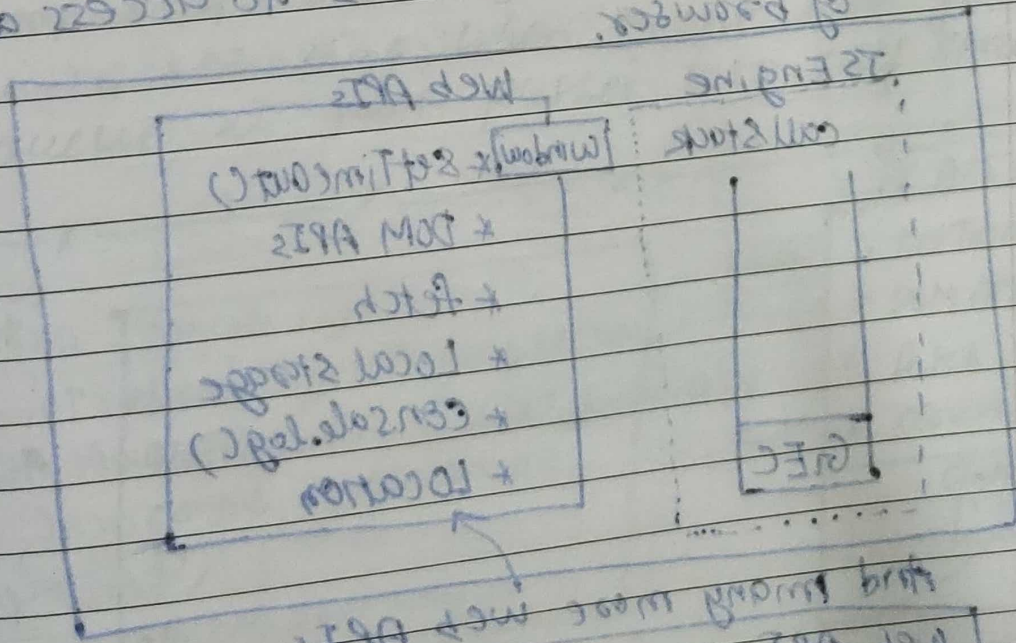 of Browser.
JS Engine
Web APIs
call stack
window
* SetTimeout()
* DOM APIs
* fetch
* Local storage
* console.log()
* Location
GEC
And many more web API